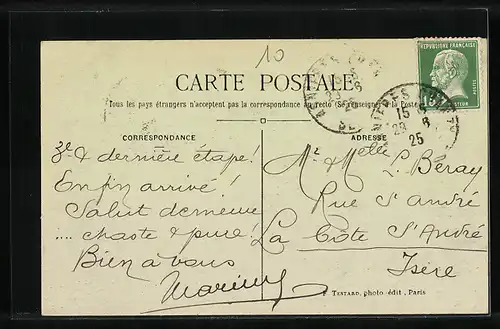 10
RÉPUBLIQUE FRANÇAISE
POSTES
15c
PASTEUR
ASNIÈRES
SEINE
15
28 6
25
CARTE POSTALE
Tous les pays étrangers n'acceptent pas la correspondance au recto (Se renseigner à la Poste)
CORRESPONDANCE
ADRESSE
3e & dernière étape!
Enfin arrivé!
Salut demeure
.... chaste & pure!
Bien à vous
Mr & Melle L. Béray
Rue St André
La Côte St André
Isère
TESTARD, photo-édit, Paris